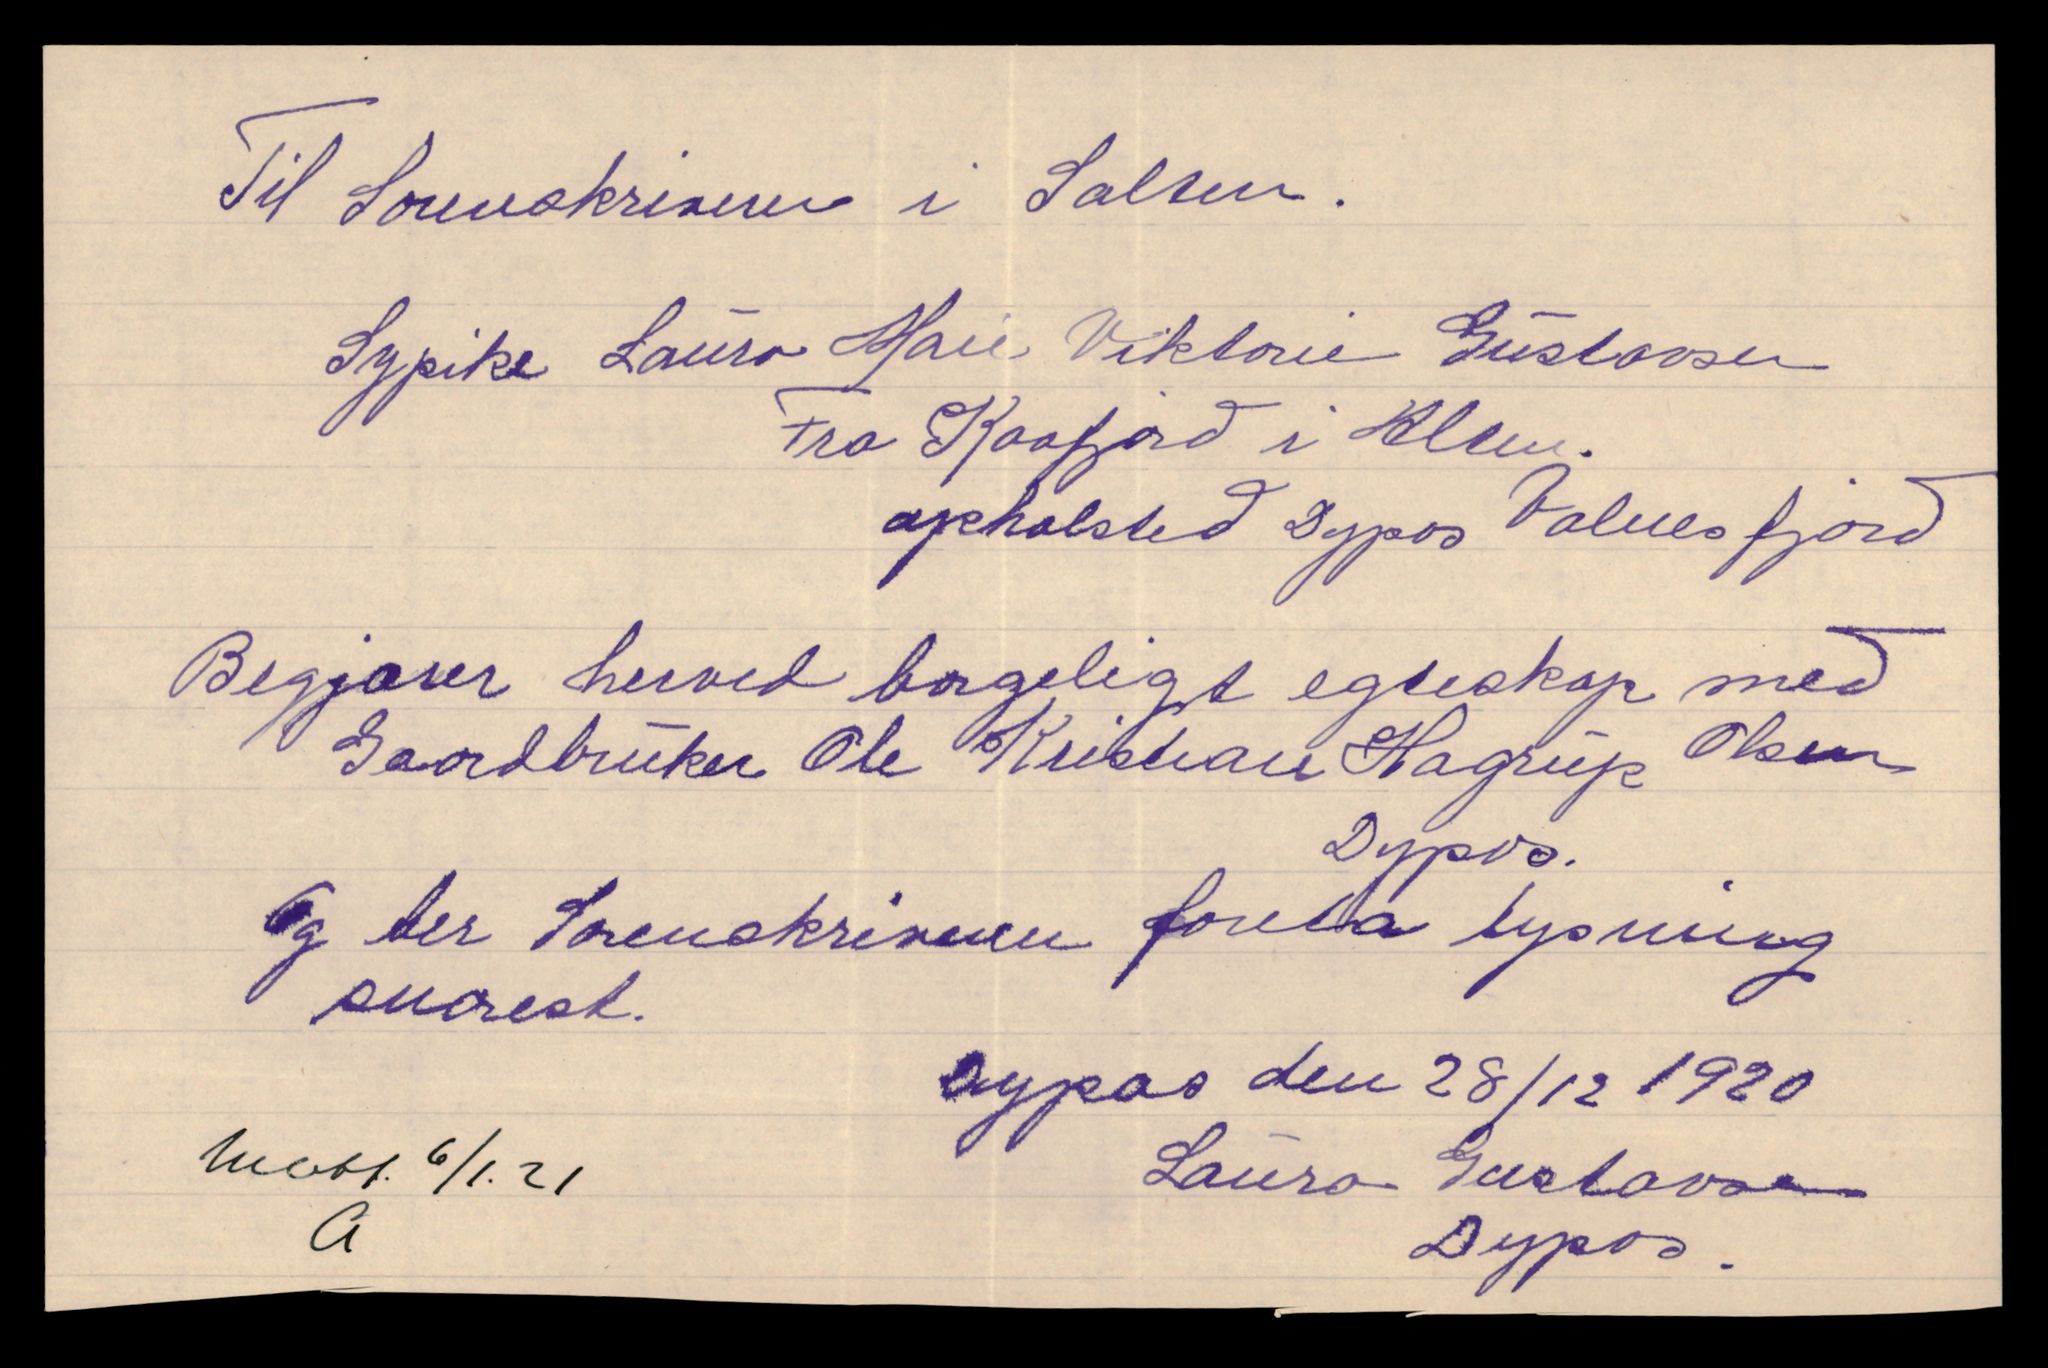 Til Sorenskriveren i Salten.
Sypike Laura Marie Viktorie Gustavsen
Fra Kaafjord i Alten.
opholsted Dypos Valnesfjord
Begjærer herved borgeligt egteskap med
Gaardbruker Ole Kristian Hagrup Olsen
Dypos.
Og ber Sorenskriveren foreta lysning
snarest.
Dypos den 28/12 1920
Laura Gustavsen
Dypos.
Mott. 6/1.21